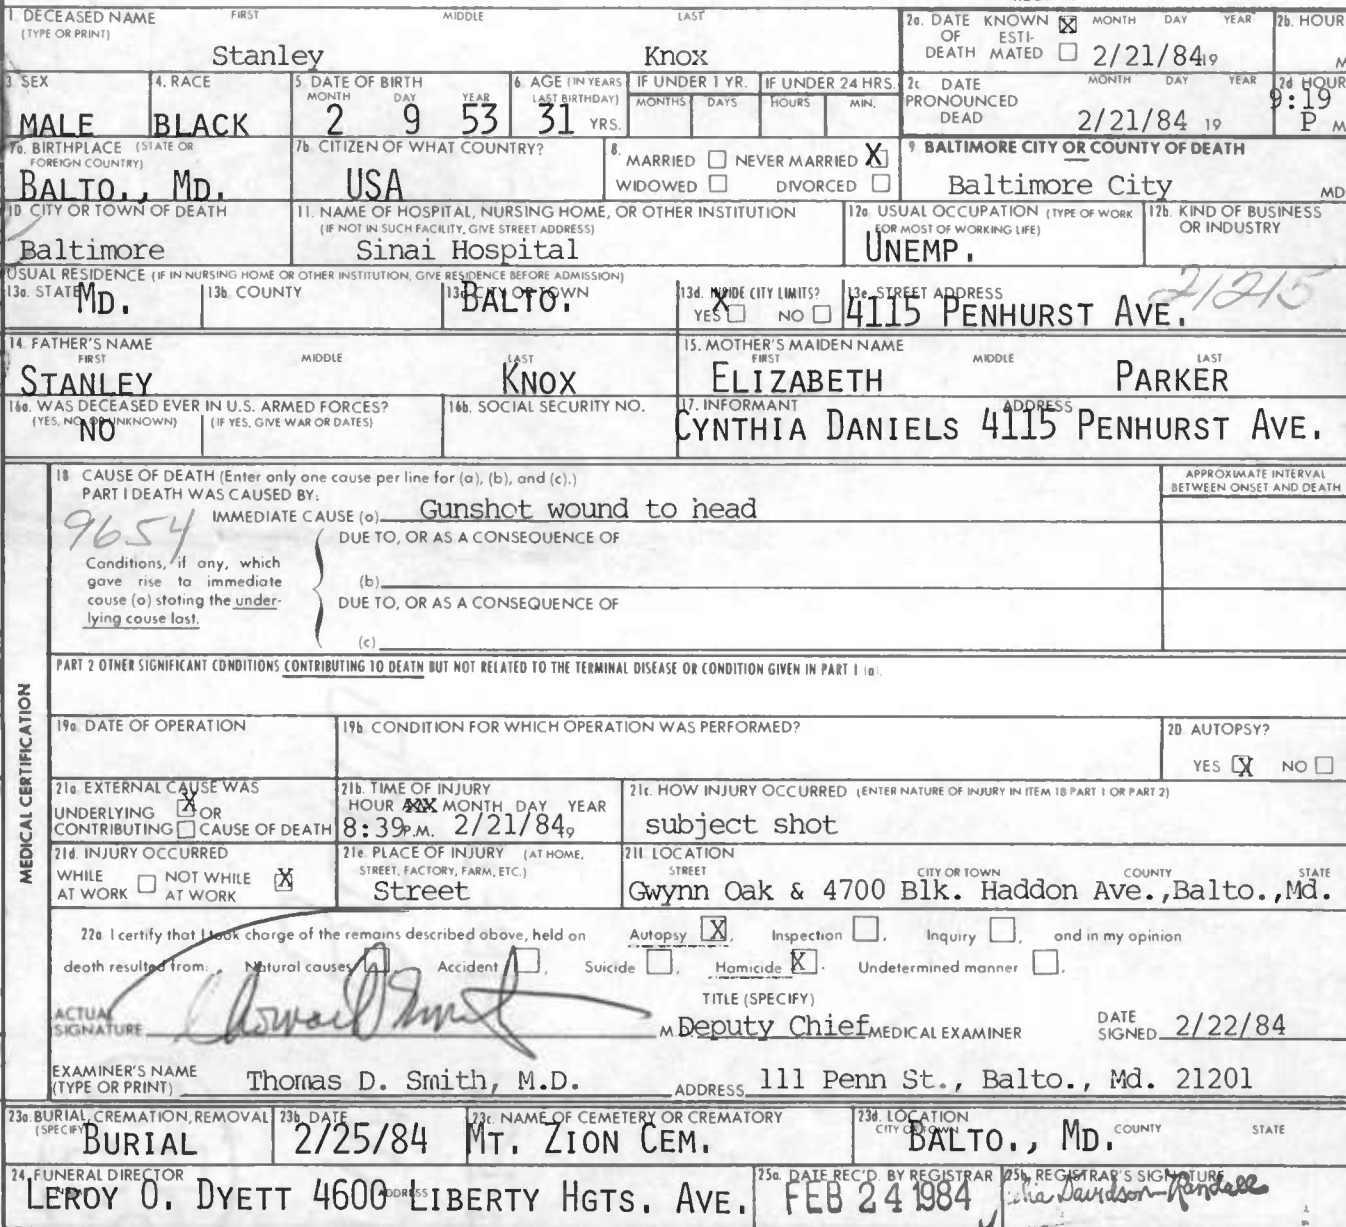 1. DECEASED NAME FIRST MIDDLE LAST
(TYPE OR PRINT)
Stanley Knox
2a. DATE KNOWN X MONTH DAY YEAR
OF ESTI-
DEATH MATED 2/21/84 19
2b. HOUR
M
3. SEX
MALE
4. RACE
BLACK
5. DATE OF BIRTH
MONTH DAY YEAR
2 9 53
6. AGE (IN YEARS
LAST BIRTHDAY)
31 YRS.
IF UNDER 1 YR.
MONTHS DAYS
IF UNDER 24 HRS.
HOURS MIN.
2c. DATE MONTH DAY YEAR
PRONOUNCED
DEAD 2/21/84 19
2d. HOUR
9:19
P M
7a. BIRTHPLACE (STATE OR
FOREIGN COUNTRY)
BALTO., MD.
7b. CITIZEN OF WHAT COUNTRY?
USA
8. MARRIED NEVER MARRIED X
WIDOWED DIVORCED
9. BALTIMORE CITY OR COUNTY OF DEATH
Baltimore City MD
10. CITY OR TOWN OF DEATH
Baltimore
11. NAME OF HOSPITAL, NURSING HOME, OR OTHER INSTITUTION
(IF NOT IN SUCH FACILITY, GIVE STREET ADDRESS)
Sinai Hospital
12a. USUAL OCCUPATION (TYPE OF WORK
FOR MOST OF WORKING LIFE)
UNEMP.
12b. KIND OF BUSINESS
OR INDUSTRY
USUAL RESIDENCE (IF IN NURSING HOME OR OTHER INSTITUTION, GIVE RESIDENCE BEFORE ADMISSION)
13a. STATE MD.
13b. COUNTY
13c. CITY OR TOWN BALTO.
13d. INSIDE CITY LIMITS?
YES X NO
13e. STREET ADDRESS 21215
4115 PENHURST AVE.
14. FATHER'S NAME
FIRST MIDDLE LAST
STANLEY KNOX
15. MOTHER'S MAIDEN NAME
FIRST MIDDLE LAST
ELIZABETH PARKER
16a. WAS DECEASED EVER IN U.S. ARMED FORCES?
(YES, NO, OR UNKNOWN) (IF YES, GIVE WAR OR DATES)
NO
16b. SOCIAL SECURITY NO.
17. INFORMANT ADDRESS
CYNTHIA DANIELS 4115 PENHURST AVE.
MEDICAL CERTIFICATION
18. CAUSE OF DEATH (Enter only one cause per line for (a), (b), and (c).)
PART I DEATH WAS CAUSED BY:
IMMEDIATE CAUSE (a) Gunshot wound to head
9654
DUE TO, OR AS A CONSEQUENCE OF
Conditions, if any, which
gave rise to immediate
cause (a) stating the under-
lying cause last.
(b)
DUE TO, OR AS A CONSEQUENCE OF
(c)
APPROXIMATE INTERVAL
BETWEEN ONSET AND DEATH
PART 2 OTHER SIGNIFICANT CONDITIONS CONTRIBUTING TO DEATH BUT NOT RELATED TO THE TERMINAL DISEASE OR CONDITION GIVEN IN PART I (a).
19a. DATE OF OPERATION
19b. CONDITION FOR WHICH OPERATION WAS PERFORMED?
20. AUTOPSY?
YES X NO
21a. EXTERNAL CAUSE WAS
UNDERLYING X OR
CONTRIBUTING CAUSE OF DEATH
21b. TIME OF INJURY
HOUR MONTH DAY YEAR
8:39 P.M. 2/21/84 9
21c. HOW INJURY OCCURRED (ENTER NATURE OF INJURY IN ITEM 18 PART 1 OR PART 2)
subject shot
21d. INJURY OCCURRED
WHILE NOT WHILE X
AT WORK AT WORK
21e. PLACE OF INJURY (AT HOME,
STREET, FACTORY, FARM, ETC.)
Street
21f. LOCATION
STREET CITY OR TOWN COUNTY STATE
Gwynn Oak & 4700 Blk. Haddon Ave.,Balto.,Md.
22a. I certify that I took charge of the remains described above, held on Autopsy X, Inspection , Inquiry , and in my opinion
death resulted from: Natural causes , Accident , Suicide , Homicide X. Undetermined manner .
ACTUAL
SIGNATURE
TITLE (SPECIFY)
M. Deputy Chief MEDICAL EXAMINER
DATE
SIGNED 2/22/84
EXAMINER'S NAME
(TYPE OR PRINT) Thomas D. Smith, M.D. ADDRESS 111 Penn St., Balto., Md. 21201
23a. BURIAL, CREMATION, REMOVAL
(SPECIFY) BURIAL
23b. DATE
2/25/84
23c. NAME OF CEMETERY OR CREMATORY
MT. ZION CEM.
23d. LOCATION
CITY OR TOWN COUNTY STATE
BALTO., MD.
24. FUNERAL DIRECTOR
ADDRESS
LEROY O. DYETT 4600 LIBERTY HGTS. AVE.
25a. DATE REC'D. BY REGISTRAR
FEB 24 1984
25b. REGISTRAR'S SIGNATURE
Davidson-Randall